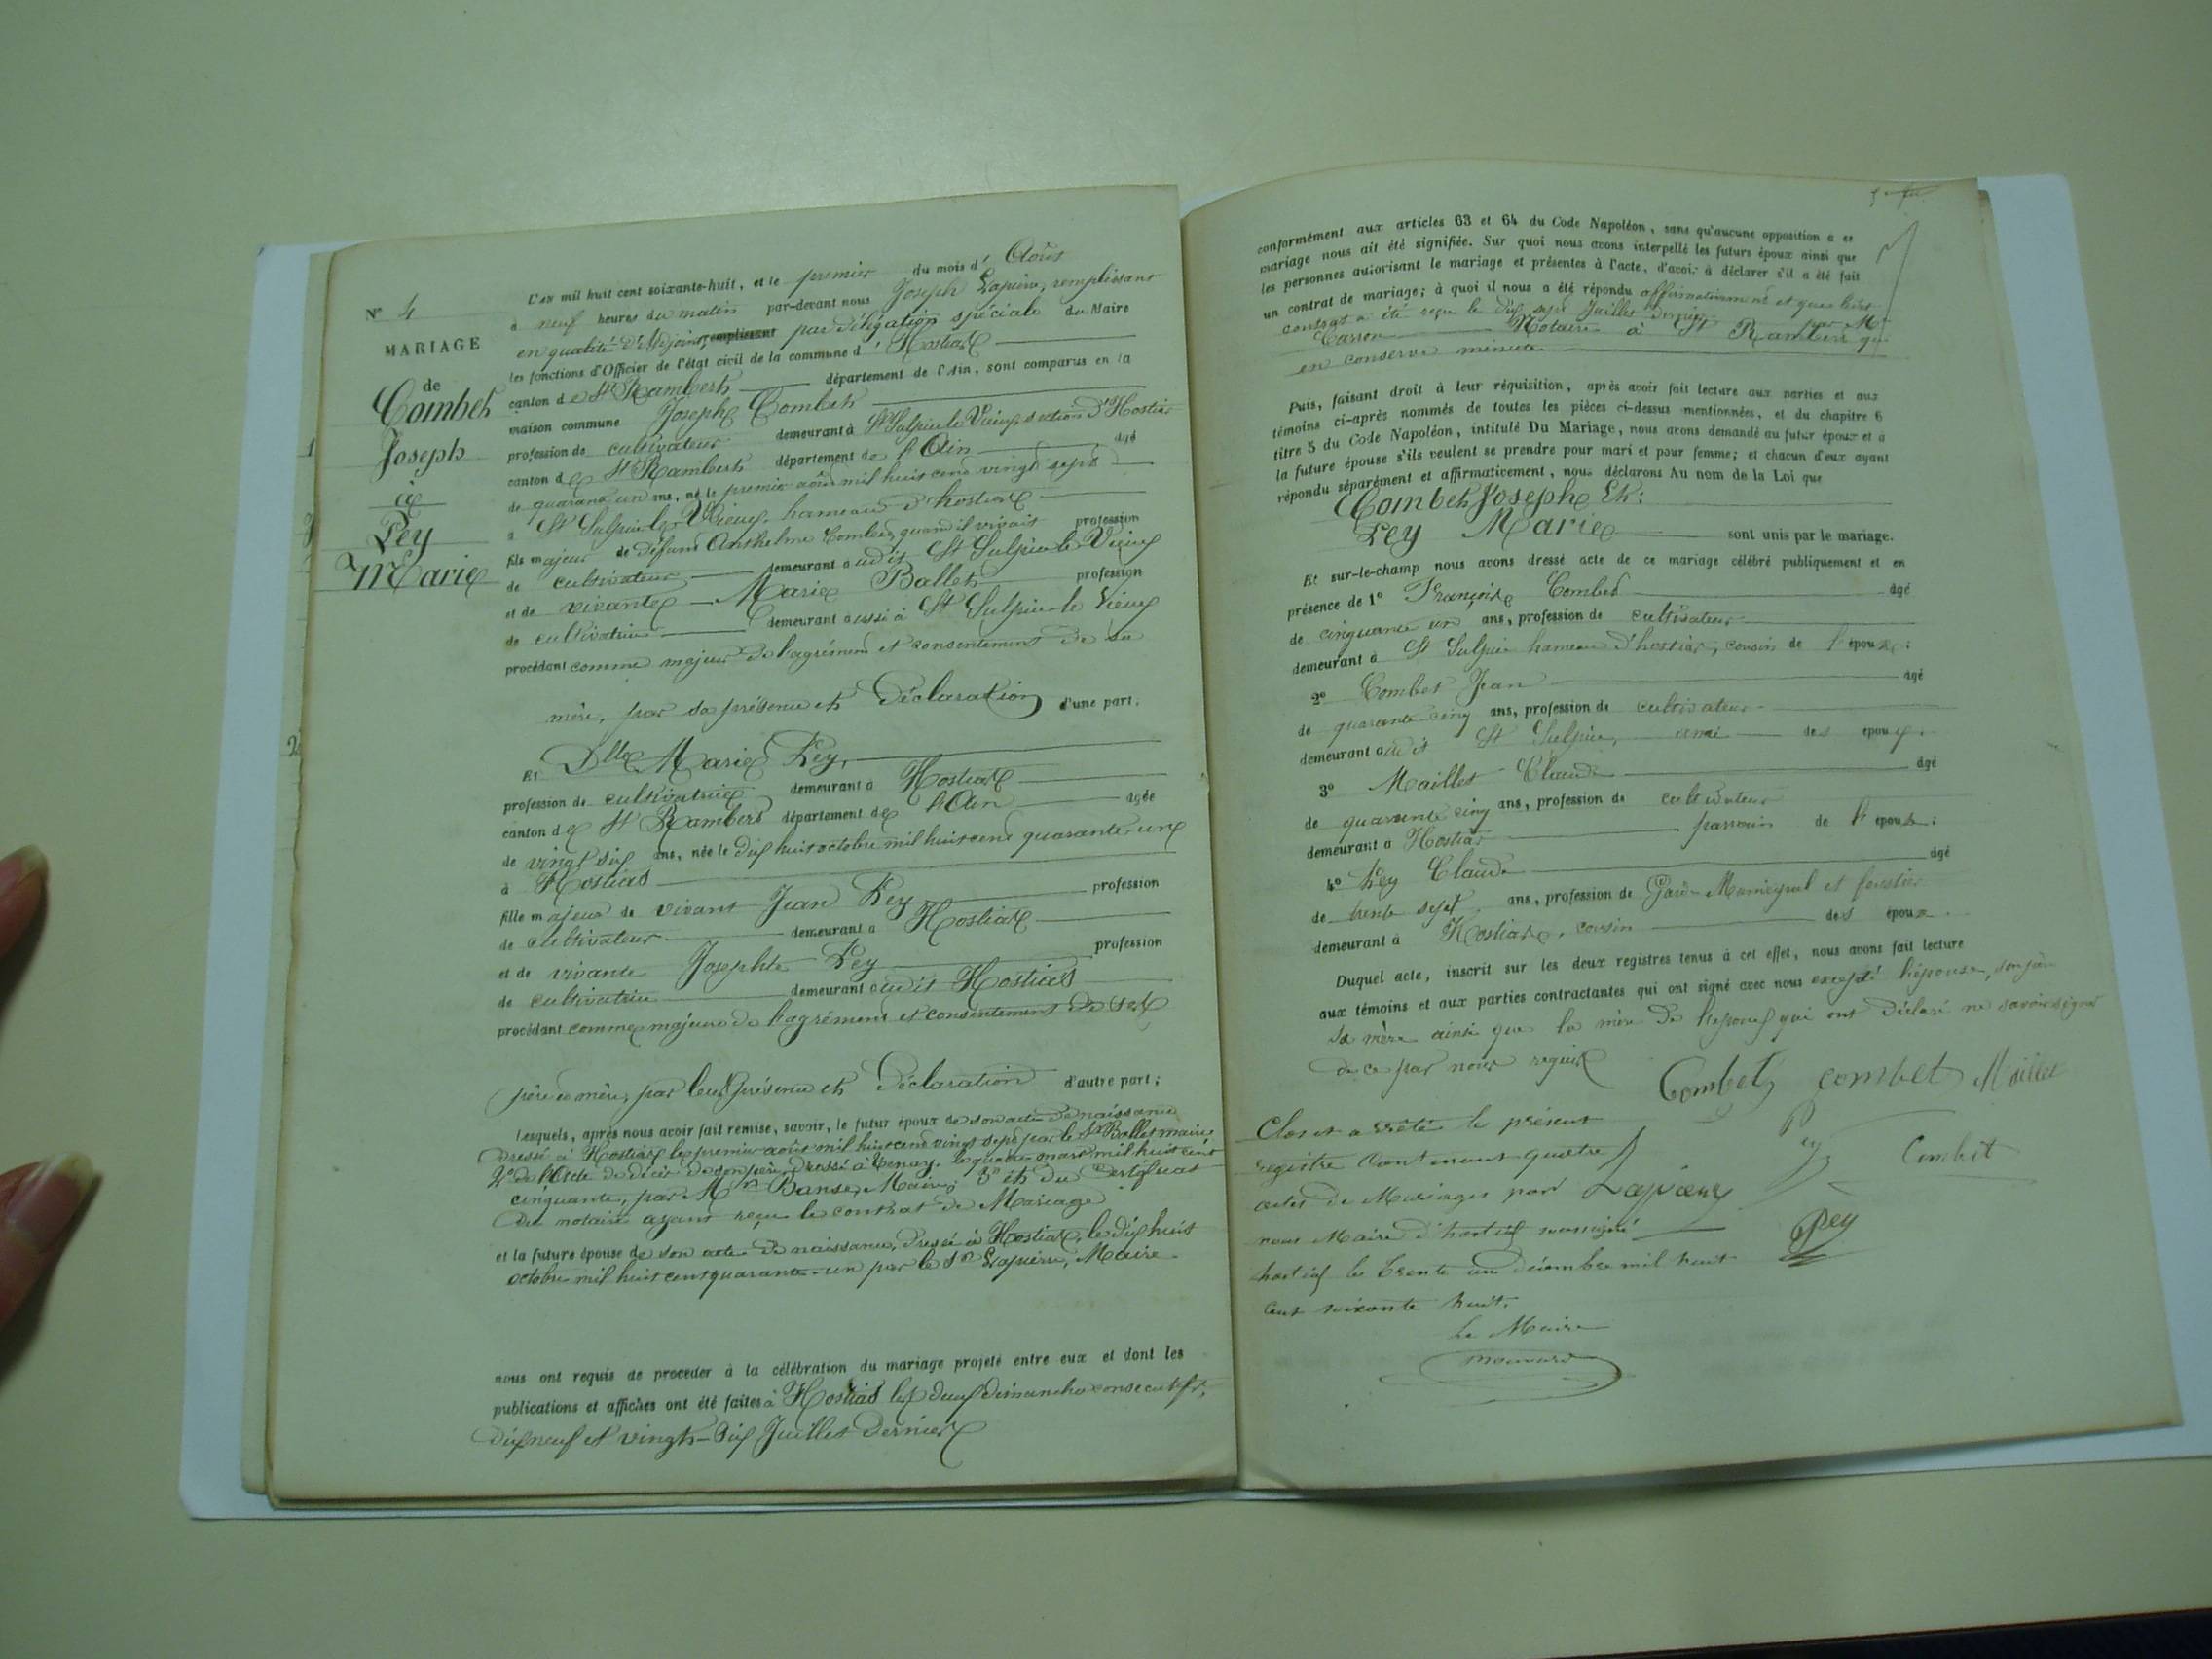 N° 4
MARIAGE
de
Combet
Joseph
à
Pey
Marie
L'an mil huit cent soixante-huit, et le premier du mois d' Août
à neuf heures du matin par-devant nous Joseph Lapierre, remplissant
en qualité d'Adjoint, remplissant par délégation spéciale du Maire
les fonctions d'Officier de l'état civil de la commune d' Hostiaz
canton de St Rambert département de l'Ain, sont comparus en la
maison commune Joseph Combet
profession de cultivateur demeurant à St Sulpice le Vieux, section d'Hostiaz
canton de St Rambert département de l'Ain âgé
de quarante un ans, né le premier août mil huit cent vingt sept
à St Sulpice le Vieux, hameau d'hostiaz
fils majeur de défunt Anthelme Combet, quand il vivait profession
de cultivateur demeurant audit St Sulpice le Vieux
et de vivante Marie Ballet profession
de cultivatrice demeurant aussi à St Sulpice le Vieux
procédant comme majeur de l'agrément et consentement de sa
mère, par sa présence et déclaration d'une part.
Et Dlle Marie Pey,
profession de cultivatrice demeurant à Hostiaz
canton de St Rambert département de l'Ain âgée
de vingt six ans, née le dix huit octobre mil huit cent quarante une
à Hostiaz
fille majeure de vivant Jean Pey profession
de cultivateur demeurant à Hostiaz
et de vivante Josephte Pey profession
de cultivatrice demeurant audit Hostiaz
procédant comme majeure de l'agrément et consentement de ses
père et mère, par leur présence et déclaration d'autre part;
Lesquels, après nous avoir fait remise, savoir, le futur époux de son acte de naissance
dressé à Hostiaz le premier août mil huit cent vingt sept par le Sr Ballet maire
2° de l'Acte de décès de son père, dressé à Tenay, le quatre mars mil huit cent
cinquante, par Mr Banse, Maire; 3° et du certificat
du notaire ayant reçu le contrat de Mariage
et la future épouse de son acte de naissance, dressé à Hostiaz, le dix huit
octobre mil huit cent quarante-un par le Sr Lapierre, Maire
nous ont requis de procéder à la célébration du mariage projeté entre eux et dont les
publications et affiches ont été faites à Hostiaz les deux dimanches consecutifs,
dix neuf et vingt-six Juillet dernier
conformément aux articles 63 et 64 du Code Napoléon, sans qu'aucune opposition à ce
mariage nous ait été signifiée. Sur quoi nous avons interpellé les futurs époux ainsi que
les personnes autorisant le mariage et présentes à l'acte, d'avoir à déclarer s'il a été fait
un contrat de mariage; à quoi il nous a été répondu affirmativement et que leur
contrat a été reçu le dix sept Juillet dernier par Me
Carron Notaire à St Rambert qui
en conserve minute
Puis, faisant droit à leur réquisition, après avoir fait lecture aux parties et aux
témoins ci-après nommés de toutes les pièces ci-dessus mentionnées, et du chapitre 6
titre 5 du Code Napoléon, intitulé Du Mariage, nous avons demandé au futur époux et à
la future épouse s'ils veulent se prendre pour mari et pour femme; et chacun d'eux ayant
répondu séparément et affirmativement, nous déclarons Au nom de la Loi que
Combet Joseph Et:
Pey Marie sont unis par le mariage.
Et sur-le-champ nous avons dressé acte de ce mariage célébré publiquement et en
présence de 1° François Combet âgé
de cinquante un ans, profession de cultivateur
demeurant à St Sulpice hameau d'hostiaz, cousin de l'époux;
2° Combet Jean âgé
de quarante-cinq ans, profession de cultivateur
demeurant audit St Sulpice, ami des époux.
3° Maillet Claude âgé
de quarante cinq ans, profession de cultivateur
demeurant à Hostiaz parrain de l'épouse;
4° Pey Claude âgé
de trente sept ans, profession de Garde Municipal et forestier
demeurant à Hostiaz, cousin des époux.
Duquel acte, inscrit sur les deux registres tenus à cet effet, nous avons fait lecture
aux témoins et aux parties contractantes qui ont signé avec nous excepté l'épouse, son père
sa mère ainsi que la mère de l'epoux qui ont déclaré ne savoir signer
de ce par nous requis
Combet combet Maillet
Pey Combet
Lapierre
Pey
Clos et arrêté le présent
registre contenant quatre
actes de Mariages par
nous Maire d'hostiaz soussigné
hostiaz le trente un décembre mil huit
cent soixante huit.
Le Maire